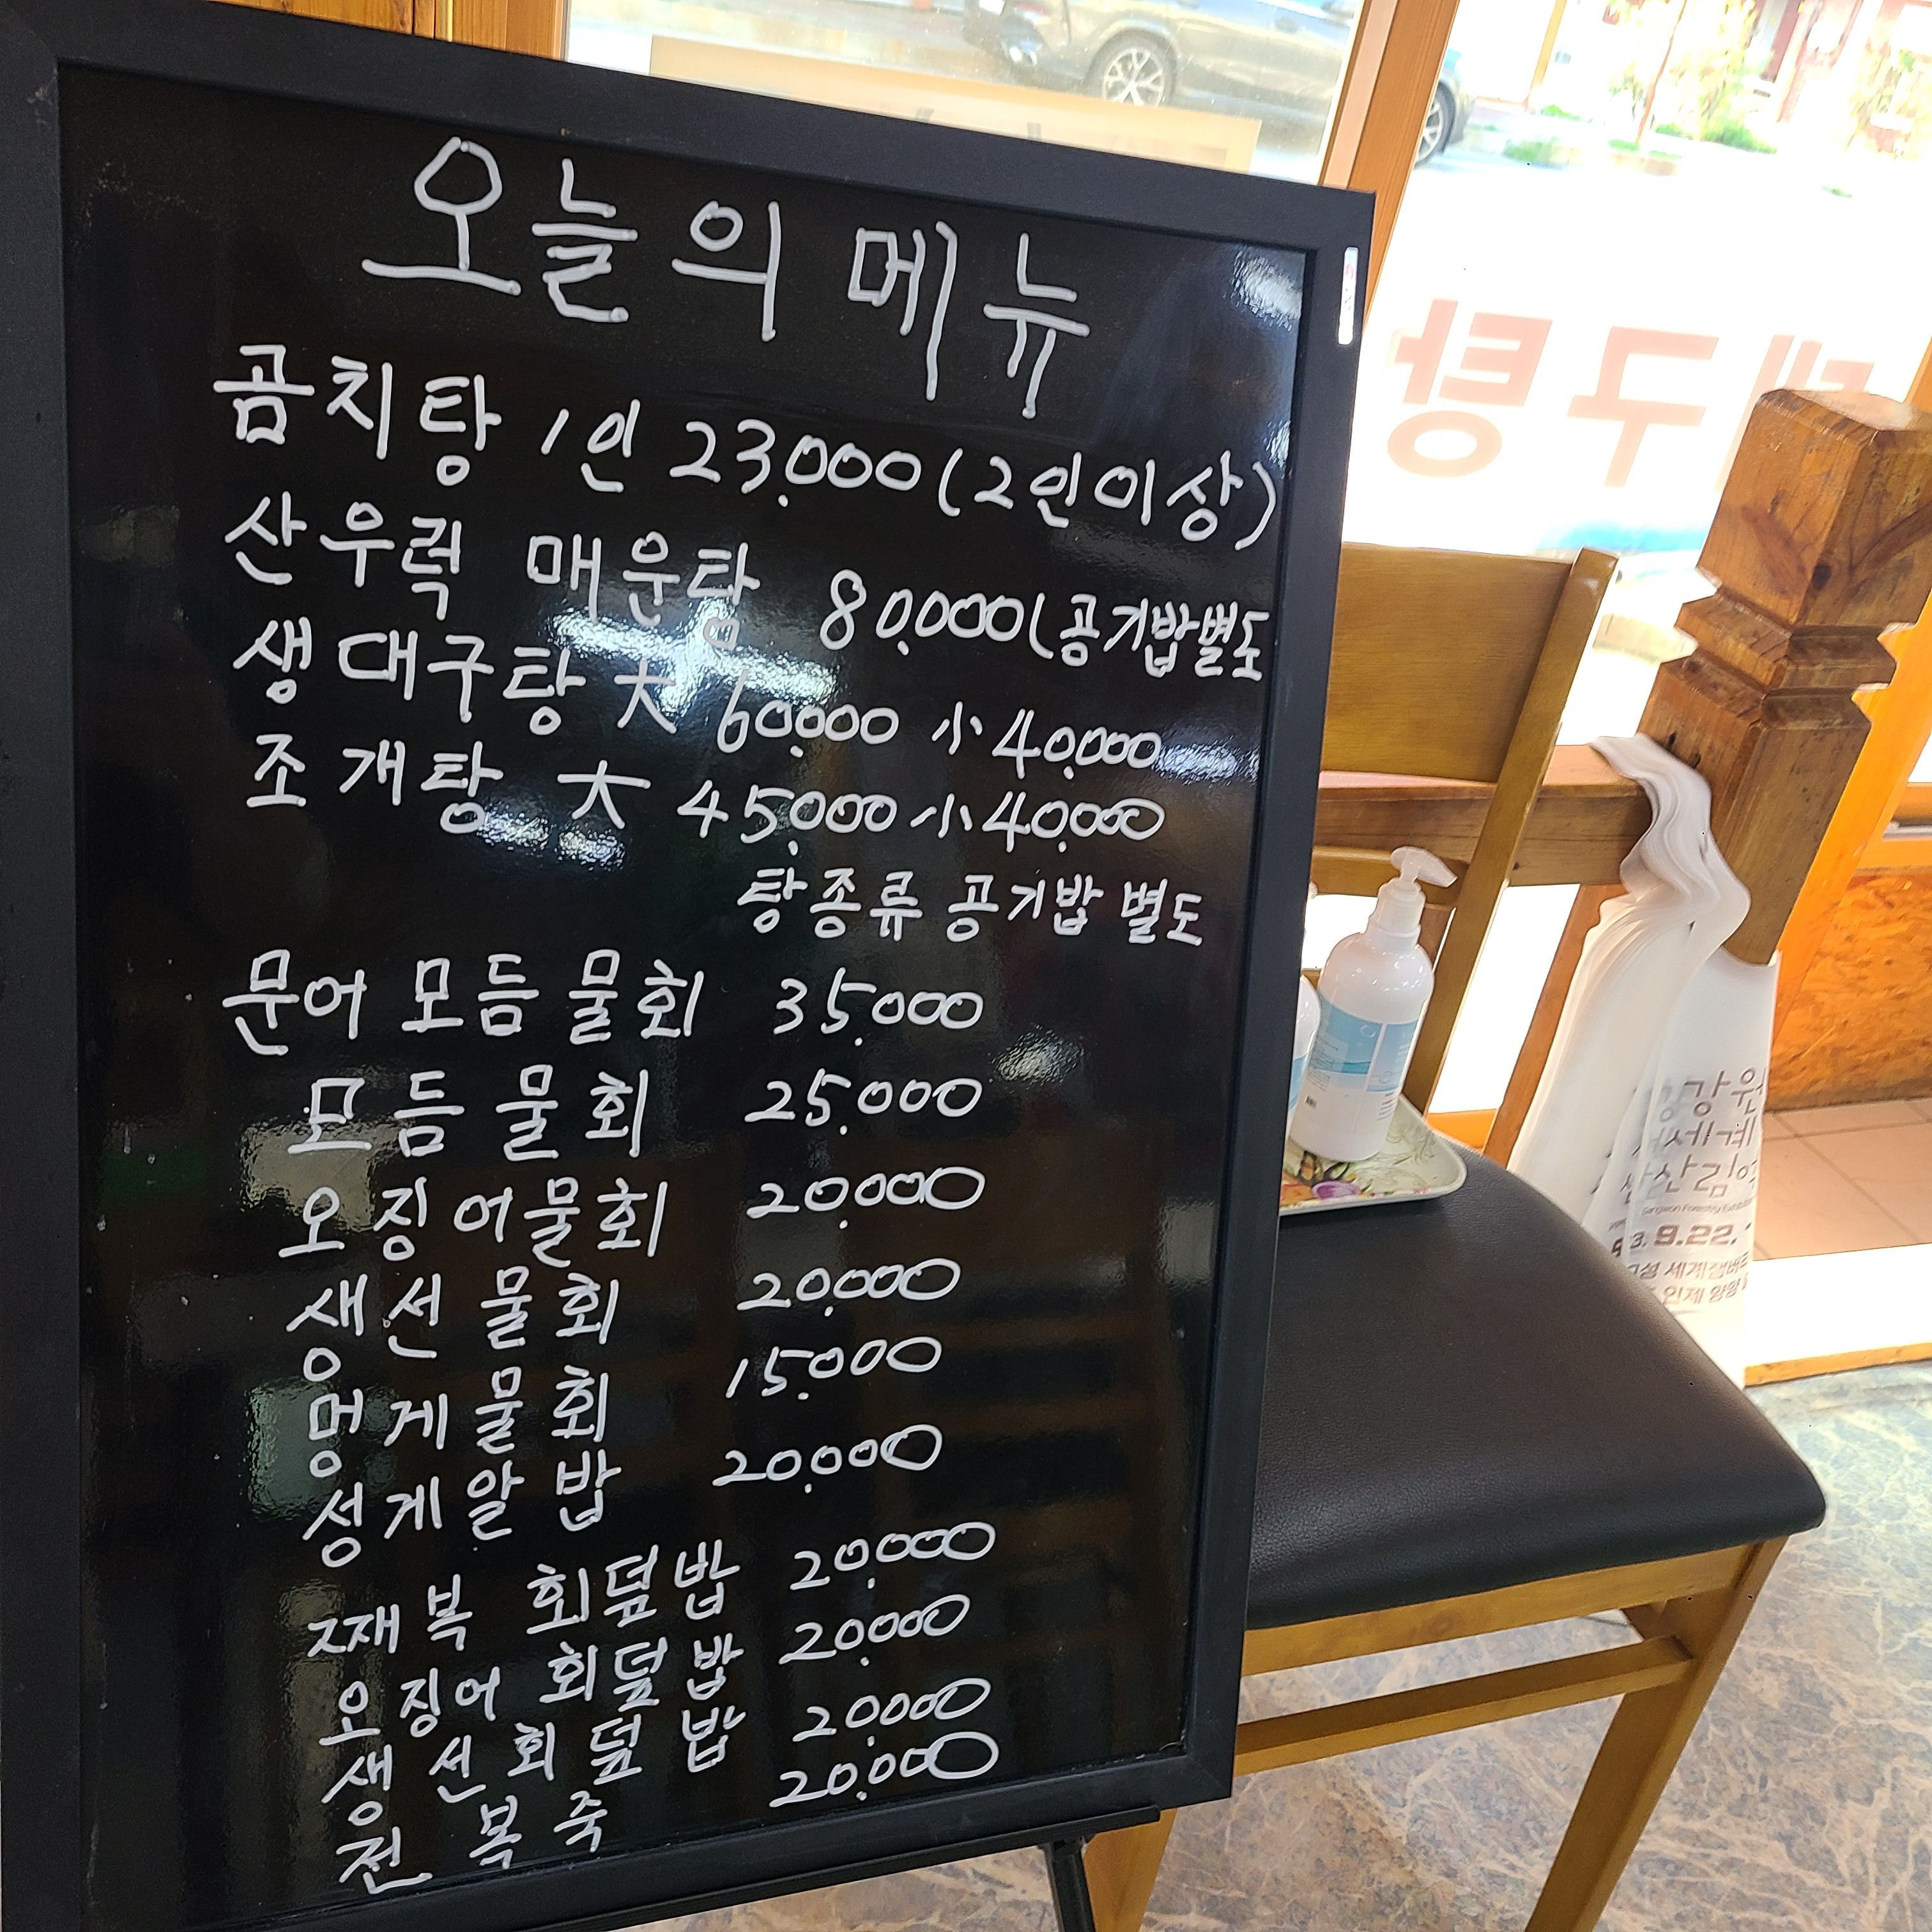 오늘의 메뉴
곰치탕 1인 23.000(2인이상)
산우럭 매운탕 80.000(공기밥별도
생대구탕 大 60.000 小 40.000
조개탕 大 45.000 小 40.000
탕종류 공기밥 별도
문어 모듬 물회 35.000
모듬 물회 25.000
오징어물회 20.000
생선 물회 20.000
멍게물회 15.000
성게알 밥 20.000
회덮밥 20.000
오징어 회덮밥 20.000
생선회덮밥 20.000
전복죽 20.000
구탕
강원
세계
산림엑
3. 9.22. -
세계잼버
인제 양양